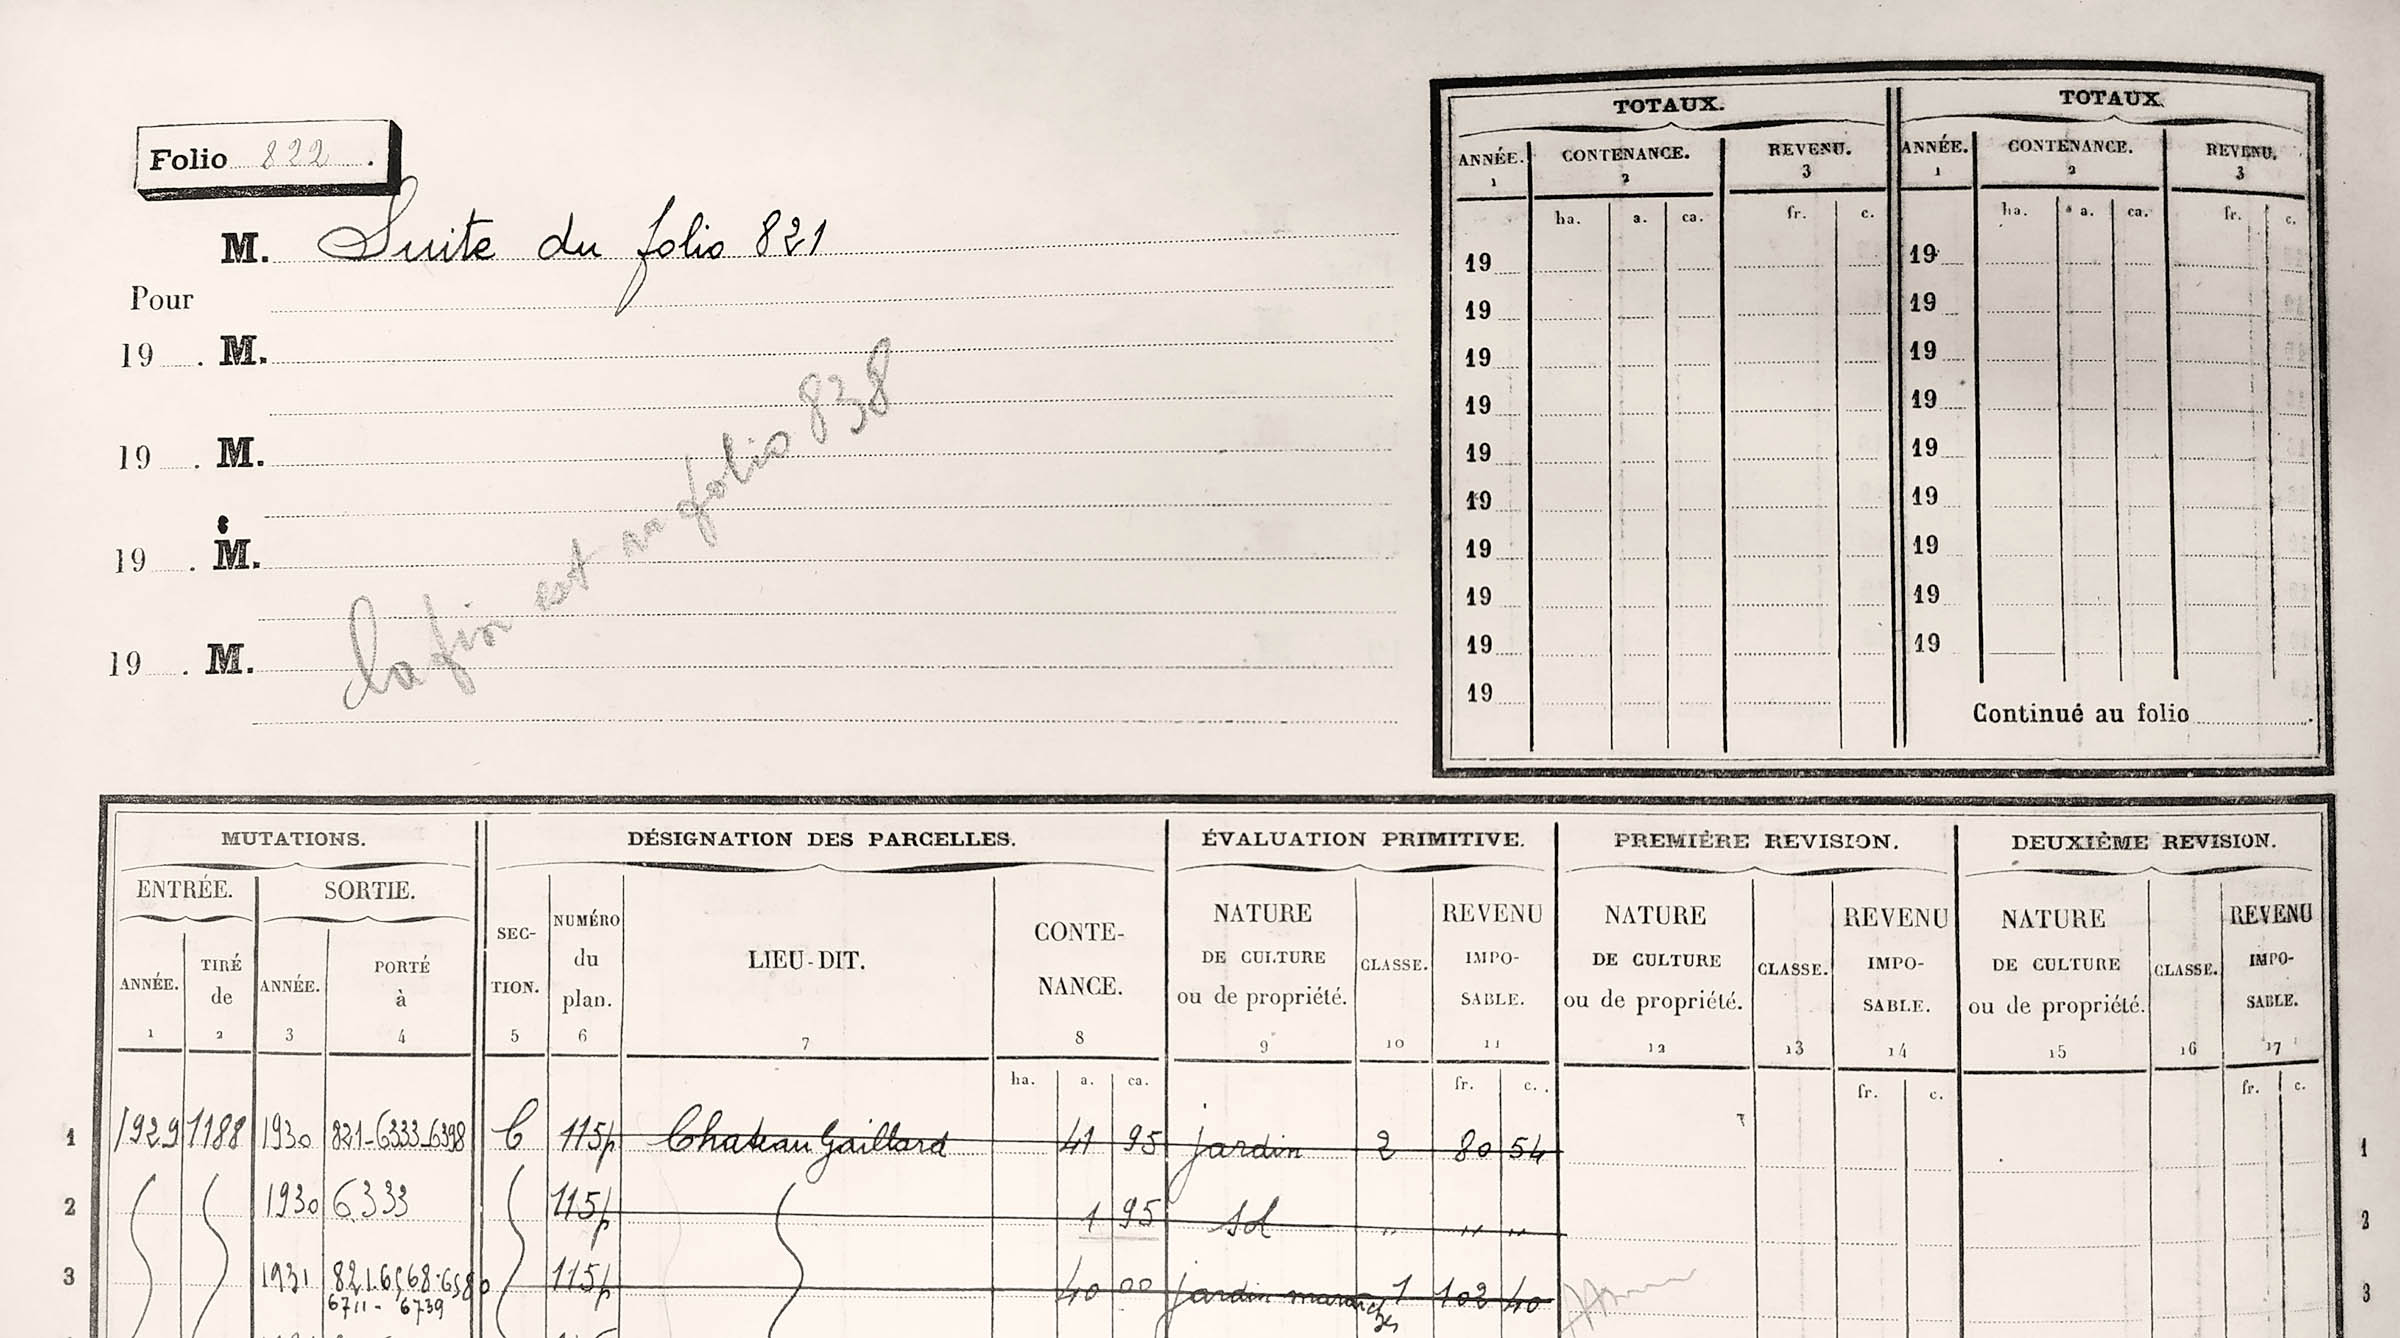 Folio 822 .
M. Suite du folio 821
Pour
19 . M.
19 . M.
19 . M.
19 . M.
la fin est au folio 838
TOTAUX. TOTAUX.
ANNÉE. CONTENANCE. REVENU. ANNÉE. CONTENANCE. REVENU.
1 2 3 1 2 3
ha. a. ca. fr. c. ha. a. ca. fr. c.
19 19
19 19
19 19
19 19
19 19
19 19
19 19
19 19
19 19
19
Continué au folio .
MUTATIONS. DÉSIGNATION DES PARCELLES. ÉVALUATION PRIMITIVE. PREMIÈRE REVISION. DEUXIÈME REVISION.
ENTRÉE. SORTIE.
ANNÉE. TIRÉ de ANNÉE. PORTÉ à SEC-TION. NUMÉRO du plan. LIEU-DIT. CONTE-NANCE. NATURE DE CULTURE ou de propriété. CLASSE. REVENU IMPO-SABLE. NATURE DE CULTURE ou de propriété. CLASSE. REVENU IMPO-SABLE. NATURE DE CULTURE ou de propriété. CLASSE. REVENU IMPO-SABLE.
1 2 3 4 5 6 7 8 9 10 11 12 13 14 15 16 17
ha. a. ca. fr. c. fr. c. fr. c.
1 1929 1188 1930 821-6333-6398 C 115p Chateau Gaillard 41 95 jardin 2 80 54 1
2 1930 6333 115p 1 95 sol " " " 2
3 1931 821.6568.6580 115p 40 00 jardin 1 102 40 3
6711 - 6739